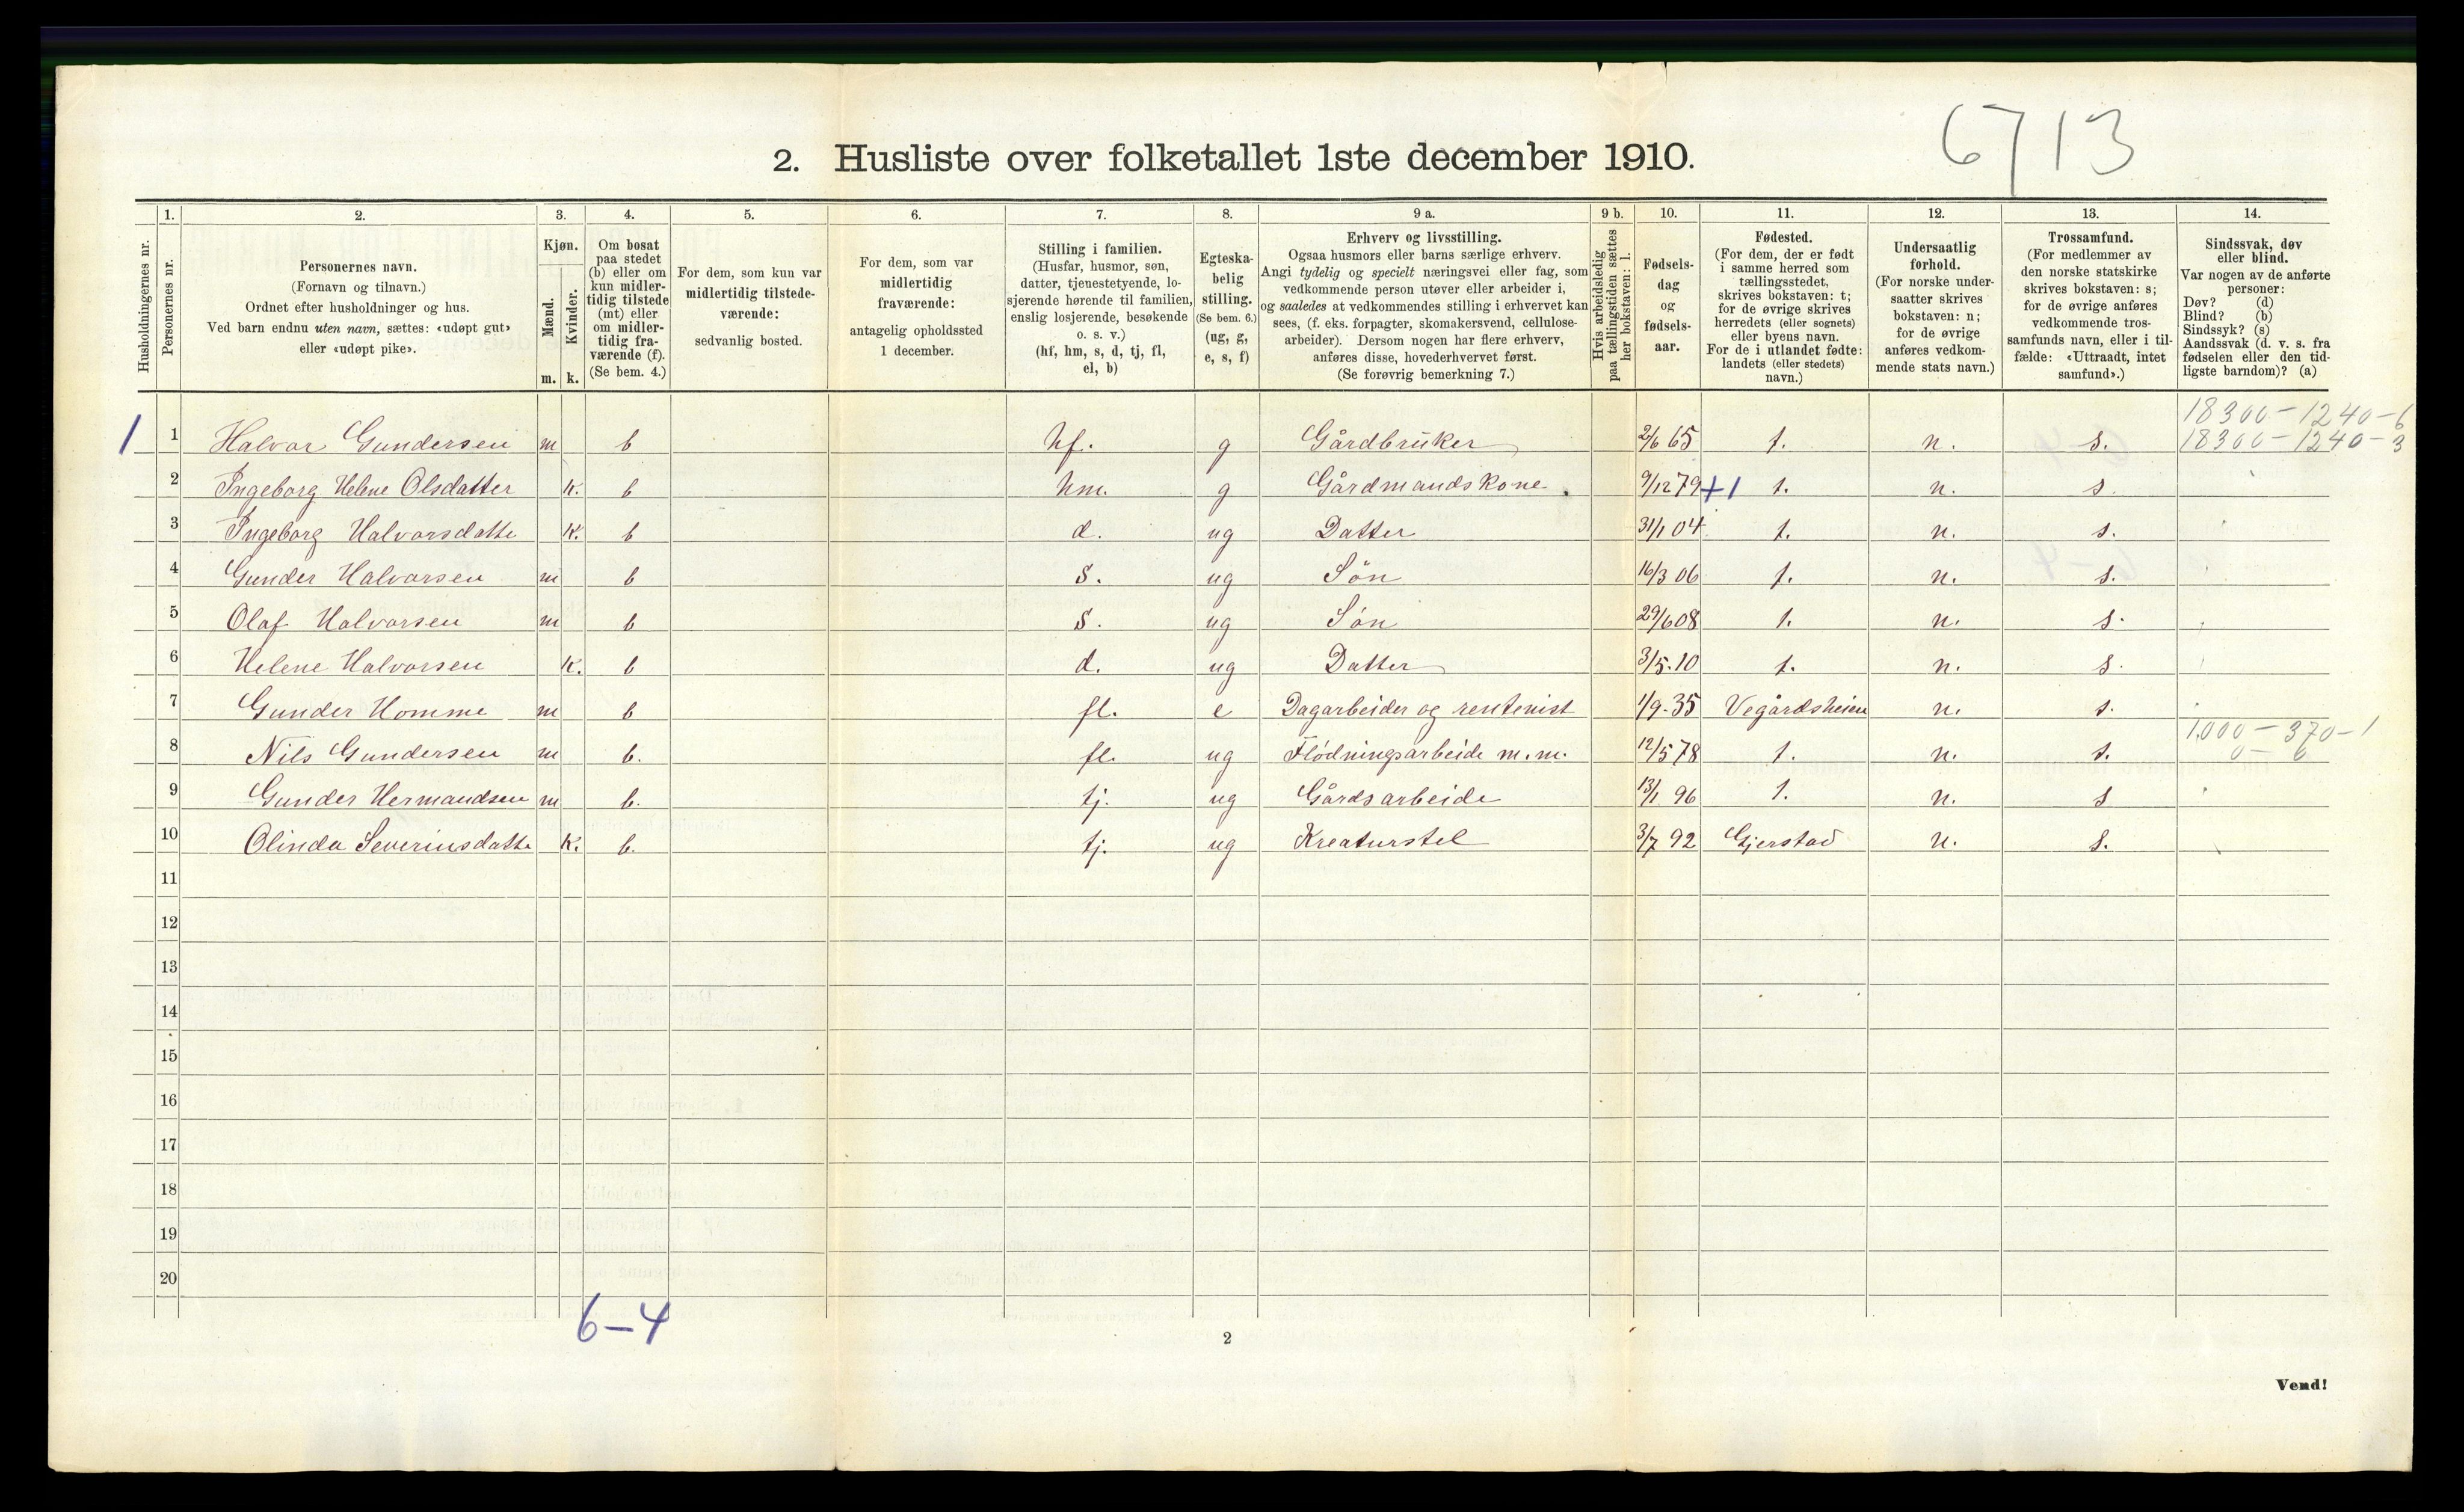 6713
2. Husliste over folketallet 1ste december 1910.
Husholdningernes nr.
1.
Personernes nr.
2.
Personernes navn.
(Fornavn og tilnavn.)
Ordnet efter husholdninger og hus.
Ved barn endnu uten navn, sættes: «udøpt gut»
eller «udøpt pike».
3.
Kjøn.
Mænd.
Kvinder.
m. k.
4.
Om bosat
paa stedet
(b) eller om
kun midler-
tidig tilstede
(mt) eller
om midler-
tidig fra-
værende (f).
(Se bem. 4.)
5.
For dem, som kun var
midlertidig tilstede-
værende:
sedvanlig bosted.
6.
For dem, som var
midlertidig
fraværende:
antagelig opholdssted
1 december.
7.
Stilling i familien.
(Husfar, husmor, søn,
datter, tjenestetyende, lo-
sjerende hørende til familien,
enslig losjerende, besøkende
o. s. v.)
(hf, hm, s, d, tj, fl,
el, b)
8.
Egteska-
belig
stilling.
(Se bem. 6.)
(ug, g,
e, s, f)
9 a.
Erhverv og livsstilling.
Ogsaa husmors eller barns særlige erhverv.
Angi tydelig og specielt næringsvei eller fag, som
vedkommende person utøver eller arbeider i,
og saaledes at vedkommendes stilling i erhvervet kan
sees, (f. eks. forpagter, skomakersvend, cellulose-
arbeider). Dersom nogen har flere erhverv,
anføres disse, hovederhvervet først.
(Se forøvrig bemerkning 7.)
9 b.
Hvis arbeidsledig
paa tællingstiden sættes
her bokstaven: l.
10.
Fødsels-
dag
og
fødsels-
aar.
11.
Fødested.
(For dem, der er født
i samme herred som
tællingsstedet,
skrives bokstaven: t;
for de øvrige skrives
herredets (eller sognets)
eller byens navn.
For de i utlandet fødte:
landets (eller stedets)
navn.)
12.
Undersaatlig
forhold.
(For norske under-
saatter skrives
bokstaven: n;
for de øvrige
anføres vedkom-
mende stats navn.)
13.
Trossamfund.
(For medlemmer av
den norske statskirke
skrives bokstaven: s;
for de øvrige anføres
vedkommende tros-
samfunds navn, eller i til-
fælde: «Uttraadt, intet
samfund».)
14.
Sindssvak, døv
eller blind.
Var nogen av de anførte
personer:
Døv? (d)
Blind? (b)
Sindssyk? (s)
Aandssvak (d. v. s. fra
fødselen eller den tid-
ligste barndom)? (a)
18300-1240-6
1 1 Halvor Gundersen m b hf. g Gårdbruker 2/6 65 t. n. s. 18300-1240-3
2 Ingeborg Helene Olsdatter k. b hm. g Gårdmandskone. 9/12 79 +1 t. n. s.
3 Ingeborg Halvorsdatte k. b d. ug Datter 31/1 04 t. n. s.
4 Gunder Halvorsen m b s. ug Søn 16/3 06 t. n. s.
5 Olaf Halvorsen m b s. ug Søn 29/6 08 t. n. s.
6 Helene Halvorsen k. b d. ug Datter 3/5.10 t. n. s.
7 Gunder Homme m b fl. e Dagarbeider og rentenist 1/9-35 Vegårdsheien n. s.
1.000-370-1
8 Nils Gundersen m b. fl. ug Flødningsarbeide m.m. 12/5 78 t. n. s. 0-6
9 Gunder Hermandsen m b. tj. ug Gårdsarbeide 13/1 96 t. n. s
10 Olinda Severinsdatte k. b. tj. ug Kreaturstel 3/7 92 Gjerstad n. s.
11
12
13
14
15
16
17
18
19
20
6-4
2
Vend!